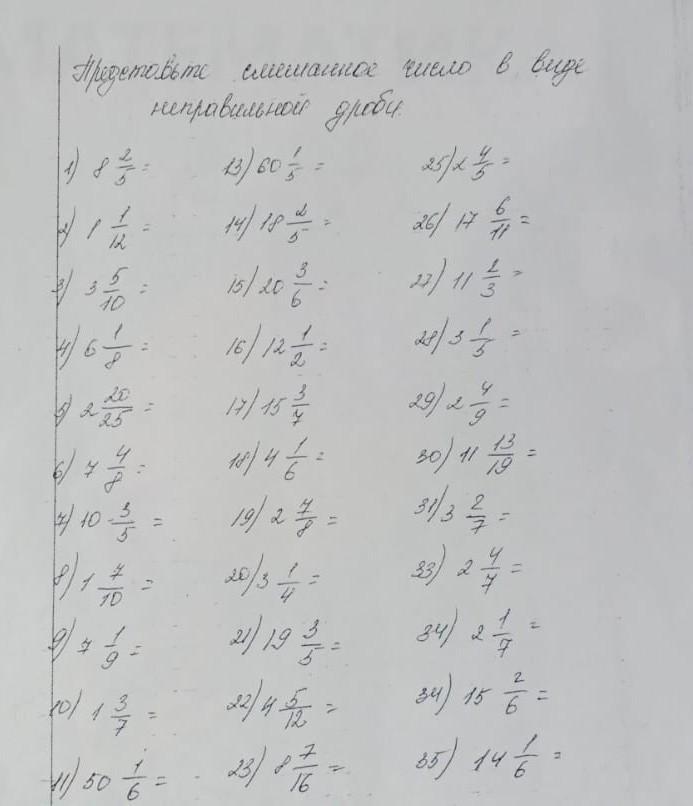 Представьте смешанное число в виде
неправильной дроби.
1) 8 2/5 =
2) 1 1/12 =
3) 3 5/10 =
4) 6 1/8 =
5) 2 20/25 =
6) 7 4/8 =
7) 10 3/5 =
8) 1 7/10 =
9) 7 1/9 =
10) 1 3/7 =
11) 50 1/6 =
13) 60 1/5 =
14) 18 2/5 =
15) 20 3/6 =
16) 12 1/2 =
17) 15 3/7
18) 4 1/6 =
19) 2 7/8 =
20) 3 1/4 =
21) 19 3/5 =
22) 4 5/12 =
23) 8 7/16 =
25) 2 4/5 =
26) 17 6/11 =
27) 11 2/3 =
28) 3 1/5 =
29) 2 4/9 =
30) 11 13/19 =
31) 3 2/7 =
33) 2 4/7 =
34) 2 1/7 =
34) 15 2/6 =
35) 14 1/6 =